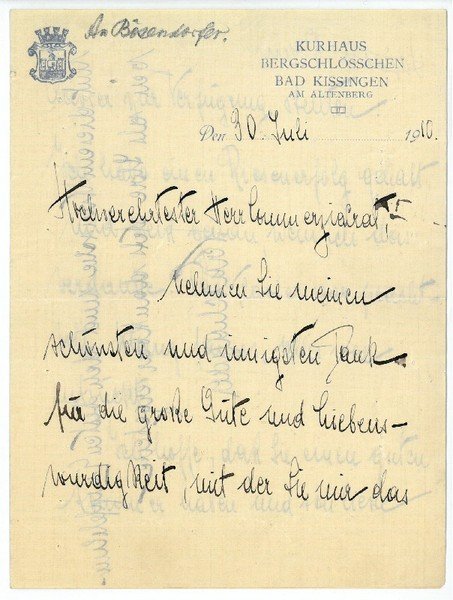 An Bösendorfer.
KURHAUS
BERGSCHLÖSSCHEN
BAD KISSINGEN
AM ALTENBERG
Den 30. Juli 1910.
Hochverehrtester Herr Commerzialrat!
nehmen Sie meinen
schönsten und innigsten Dank
für die große Güte und Liebens-
würdigkeit, mit der Sie mir das